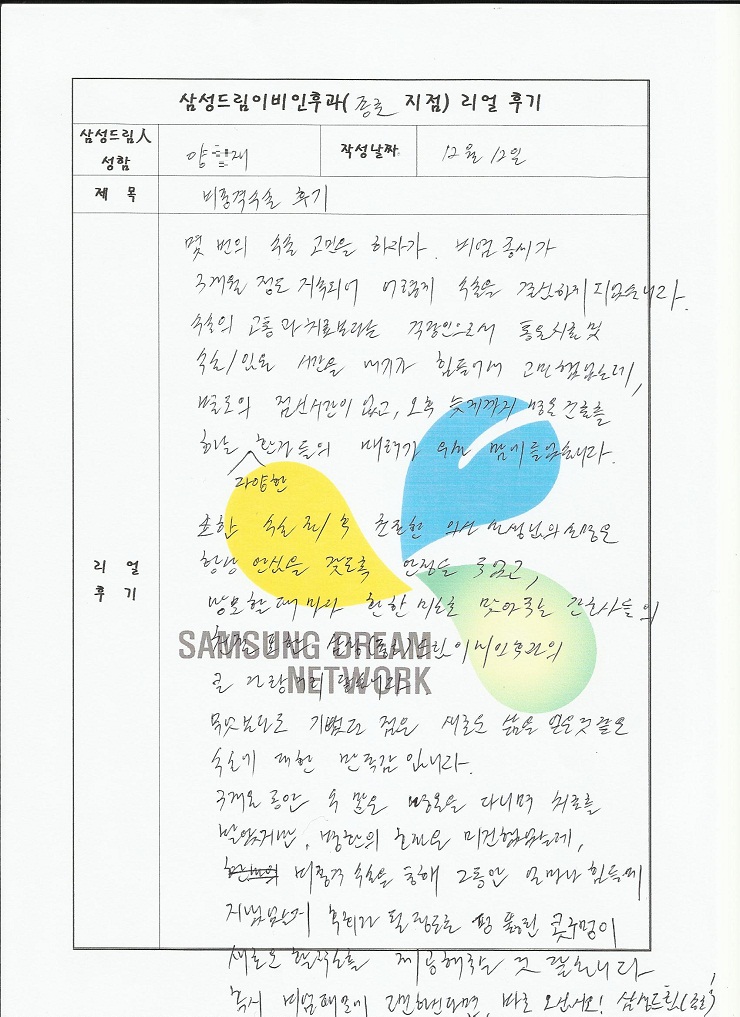 삼성드림이비인후과(종로 지점) 리얼 후기
삼성드림人 성함
양 재
작성날짜
12월 12일
제 목
비중격수술 후기
리 얼 후 기
몇 번의 수술 고민을 하다가. 비염 증세가
3개월 정도 지속되어 어렵게 수술을 결심하게 되었습니다.
수술의 고통과 치료보다는 직장인으로서 통원치료 및
수술/입원 시간을 내기가 힘들어서 고민했었는데,
별도의 점심시간이 없고, 오후 늦게까지 병원 진료를
하는 환자들의 배려가 맘에 들었습니다.
다양한
또한 수술 전/후 친절한 의사 선생님의 설명은
항상 안심을 갖도록 안정을 주었고,
방문할 때마다 환한 미소로 맞아주는 간호사들의
친절 또한 삼성드림이비인후과의
큰 자랑거리 같습니다.
무엇보다도 기뻤던 점은 새로운 삶을 얻은 것 같은
수술에 대한 만족감입니다.
3개월 동안 수 많은 병원을 다니며 치료를
받았지만, 방문의 효과는 미진했었는데,
비중격 수술을 통해 그동안 얼마나 힘들게
지냈었는지 후회가 될 정도로 뻥 뚫린 콧구멍이
새로운 활력소를 제공해주는 것 같습니다
혹시 비염때문에 고민하신다면, 바로 오세요! 삼성드림(종로)!
SAMSUNG DREAM
NETWORK